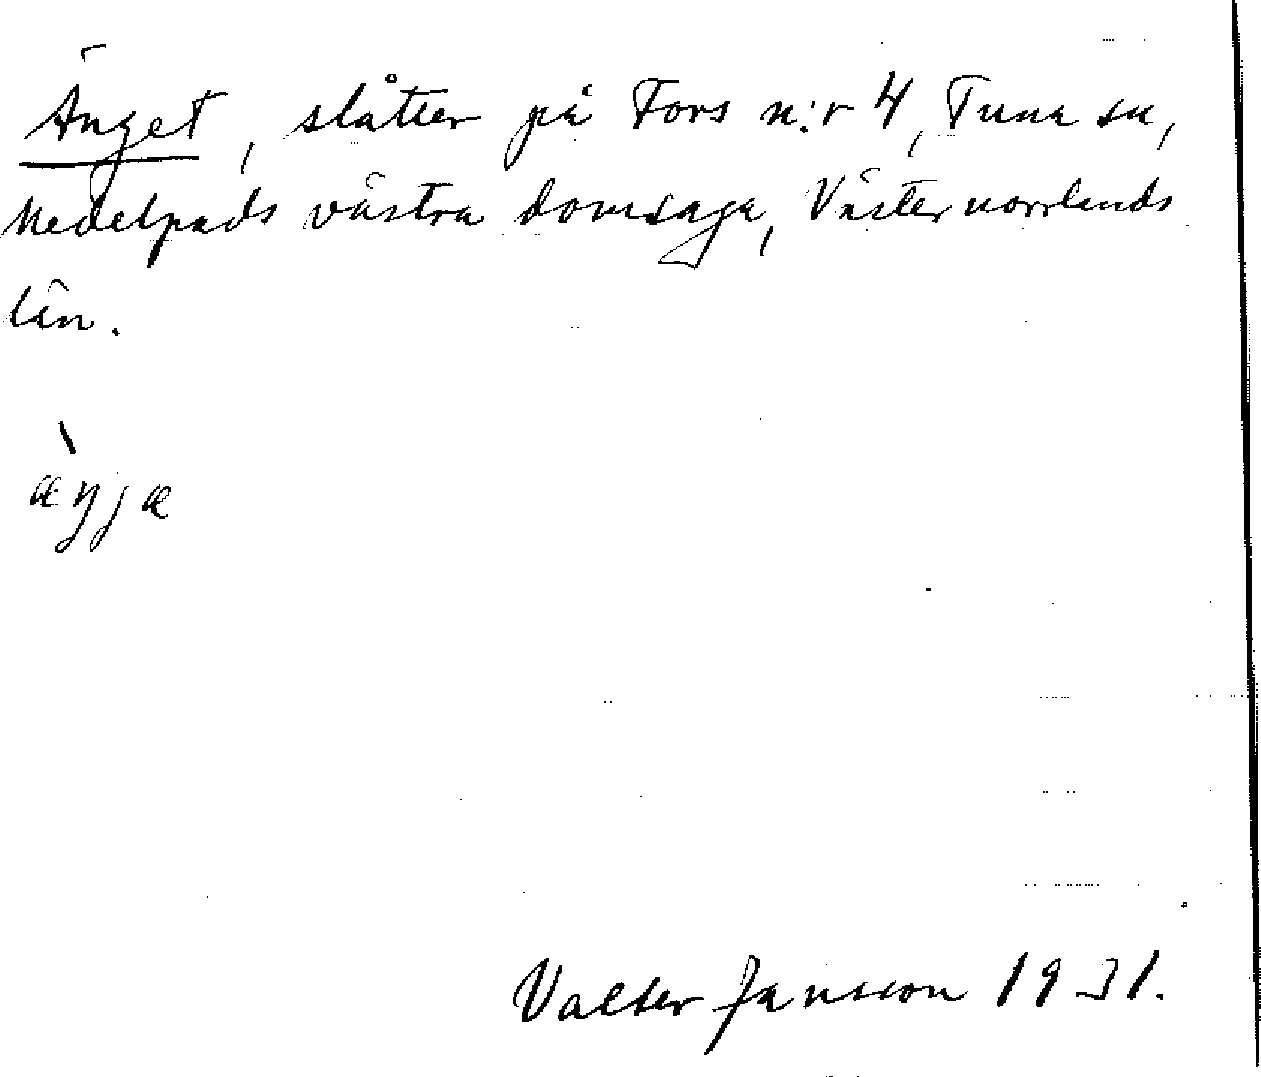 Änget, slåtter på Fors n:r 4, Tuna sn,
Medelpads västra domsaga, Västernorrlands
län.
æ̀ŋjæ
Valter Jansson 1931.